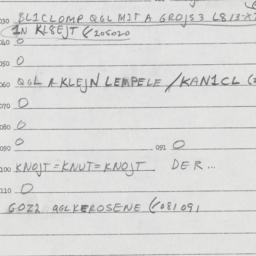 030 BL1CLOMP QGL M1T A GROJS3 L813-X
1N KLSEJT (/205020
040 O
050 O
060 QGL A KLEJN LEMPELE /KAN1CL (
070 O
080 O
090 O 091 O
100 KNOJT=KNUT=KNOJT DER...
110 O
GOZZ QGLKEROSENE (/081091